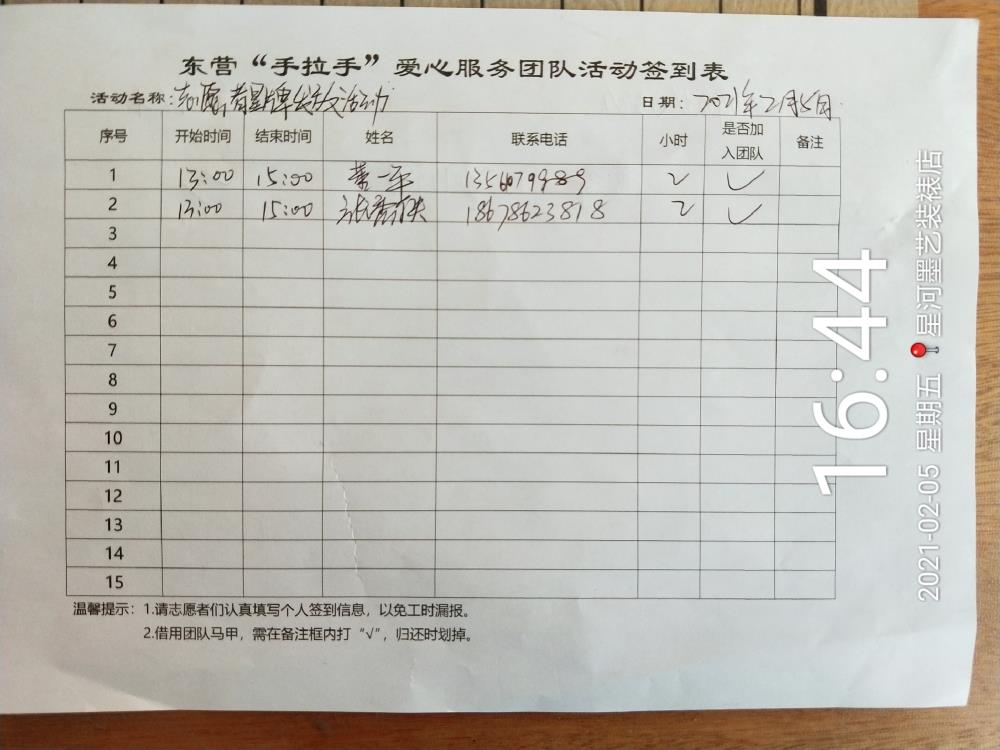 东营“手拉手”爱心服务团队活动签到表
活动名称：志愿者星牌发放活动 日期：2021年2月5日
序号 开始时间 结束时间 姓名 联系电话 小时 是否加入团队 备注
1 13:00 15:00 一平 2 ✓
2 13:00 15:00 18678623818 2 ✓
3
4
5
6
7
8
9
10
11
12
13
14
15
温馨提示：1.请志愿者们认真填写个人签到信息，以免工时漏报。
2.借用团队马甲，需在备注框内打“√”，归还时划掉。
16:44
2021-02-05 星期五 星河墨艺装裱店